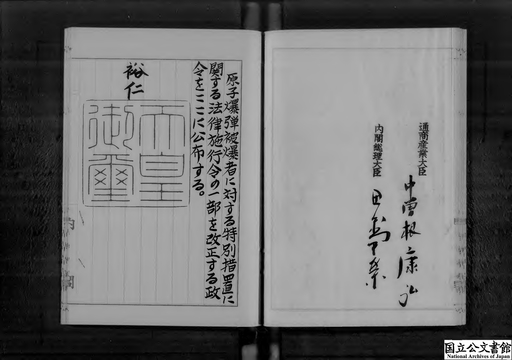 通商産業大臣
中曽根康弘
内閣総理大臣
田中角榮
原子爆弾被爆者に対する特別措置に
関する法律施行令の一部を改正する政
令をここに公布する。
裕仁
天皇
御璽
国立公文書館
National Archives of Japan